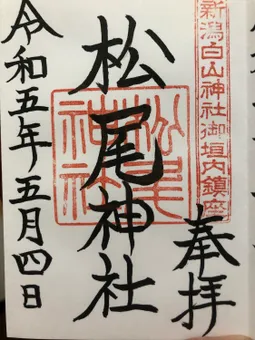 新潟白山神社御垣内鎮座
奉拝
松尾神社
松尾神社
令和五年五月四日